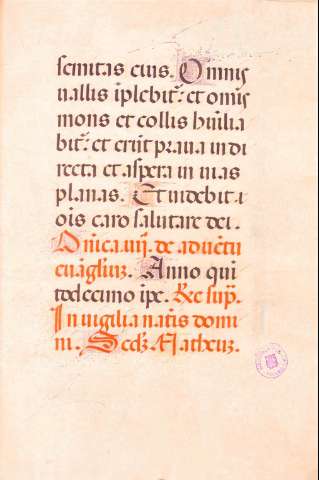 semitas eius. Omnis
uallis īplebit᷑: et om̄is
mons et collis humilia
bit᷑: et erūt praua in di
recta et aspera in uias
planas. Et uidebit .i
oīs caro salutare dei.
Dn̄ica .iiij. de aduētu
euāgliuz. Anno qui
todecimo īpe. Re᷑ sup̄.
In uigilia natīs domi
ni. Scdz Matheuz.